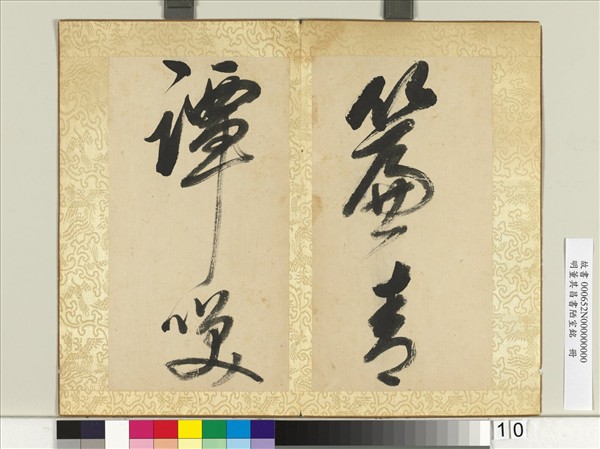 簾青
譚笑
故書 000652N000000000
明董其昌書陋室銘 冊
10